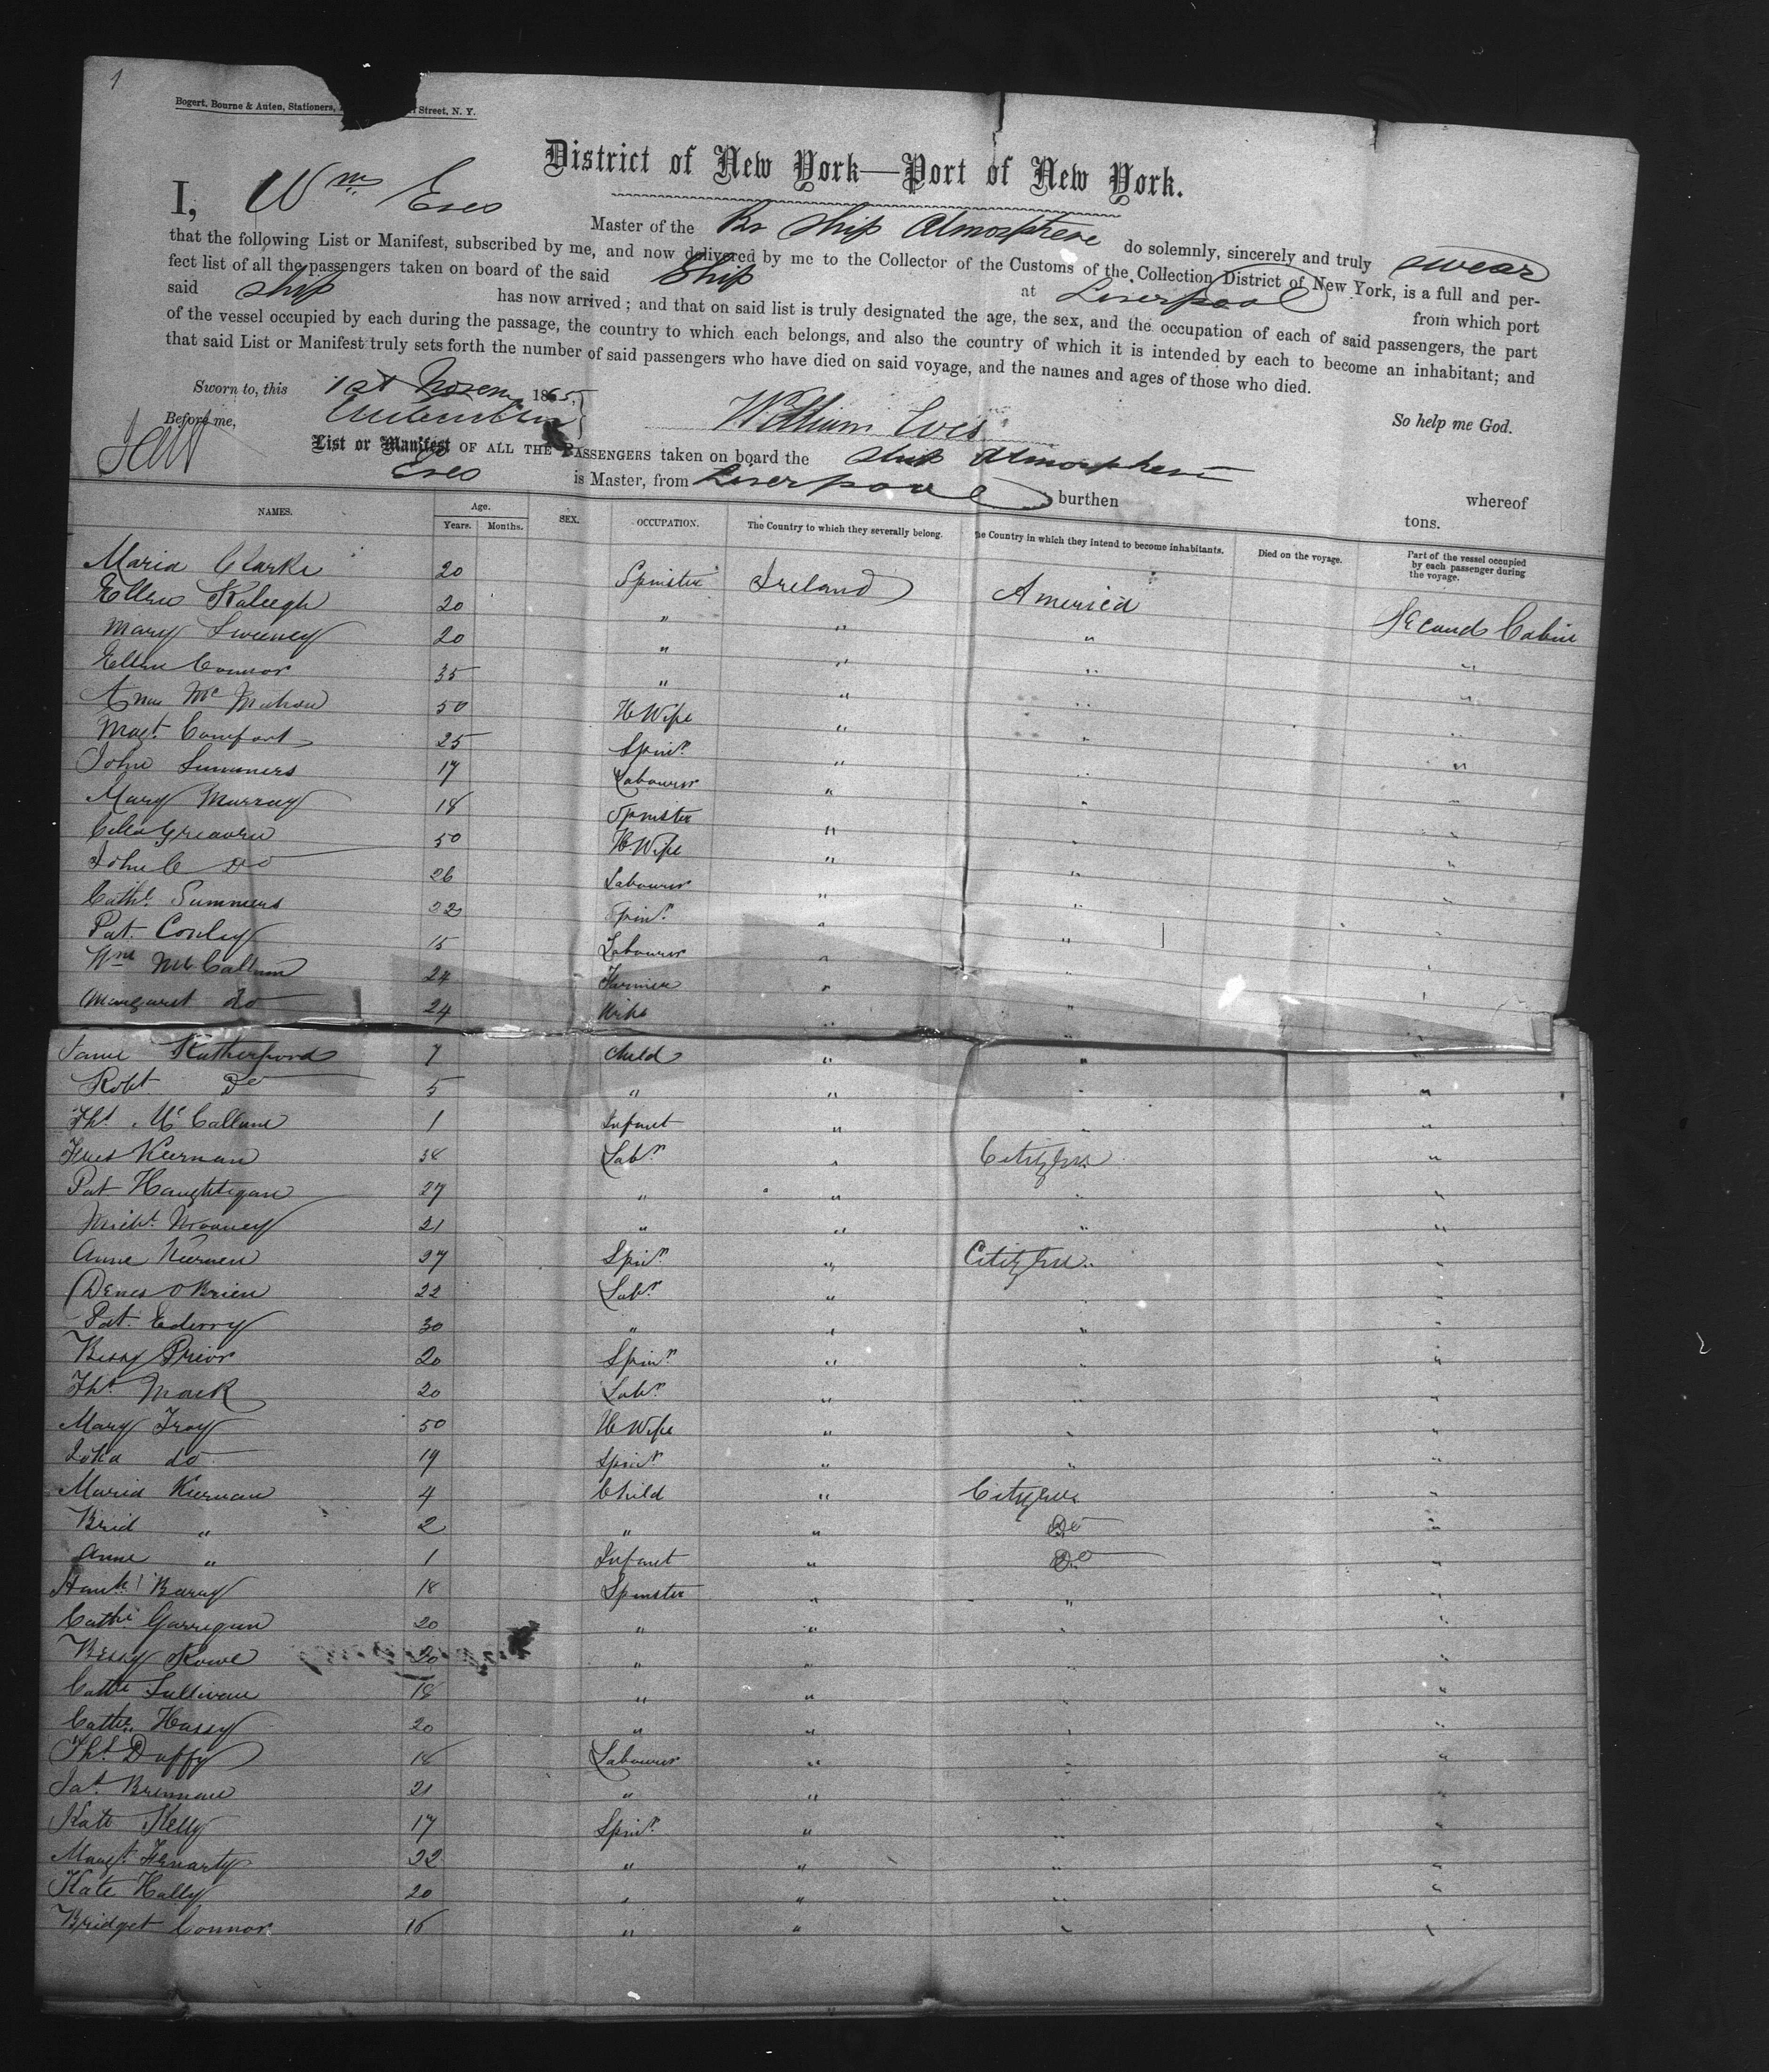 1
Bogert, Bourne & Auten, Stationers, Street, N. Y.
District of New York—Port of New York.
I, Wm Eves Master of the Br Ship Atmosphere do solemnly, sincerely and truly swear
that the following List or Manifest, subscribed by me, and now delivered by me to the Collector of the Customs of the Collection District of New York, is a full and per-
fect list of all the passengers taken on board of the said Ship at Liverpool from which port
said ship has now arrived; and that on said list is truly designated the age, the sex, and the occupation of each of said passengers, the part
of the vessel occupied by each during the passage, the country to which each belongs, and also the country of which it is intended by each to become an inhabitant; and
that said List or Manifest truly sets forth the number of said passengers who have died on said voyage, and the names and ages of those who died.
Sworn to, this 1st Novem 1865, So help me God.
Before me, William Eves
List or Manifest OF ALL THE PASSENGERS taken on board the Ship Atmosphere whereof
Eves is Master, from Liverpool burthen tons.
NAMES. Age. Years. Months. SEX. OCCUPATION. The Country to which they severally belong. The Country in which they intend to become inhabitants. Died on the voyage. Part of the vessel occupied by each passenger during the voyage.
Maria Clarke 20 Spinster Ireland America Second Cabin
Ellen Raleigh 20 " " " "
Mary Sweeney 20 " " " "
Ellen Connor 35 " " " "
Ann McMahon 50 H Wife " " "
Magt. Comfort 25 Spinr " " "
John Summers 17 Labourer " " "
Mary Murray 18 Spinster " " "
50 H. Wife " " "
John C Do 26 Labourer " " "
Cathe. Summers 22 Spinr " " "
Pat. Conley 15 Labourer " " "
Wm McCallum 24 Farmer " " "
Margaret do 24 Wife " " "
Jame Rutherford 7 Child " " "
Robt Do 5 " " " "
Ths McCallum 1 Infant " " "
Kiernan 38 Labr " Citizen "
Pat Haughtigan 27 " " " "
Michl Mooney 21 " " " "
Anne Kiernan 27 Spinr " Citizen "
Denes OBrien 22 Labr " " "
Pat. Ederry 30 " " " "
Bessy Prior 20 Spinr " " "
Ths Mack 20 Labr " " "
Mary Troy 50 H Wife " " "
do 19 Spinr " " "
Maria Kiernan 4 Child " Citizen "
Brid " 2 " " Do "
Anne " 1 Infant " Do "
Hanh Barry 18 Spinster " " "
Cathe Garrigan 20 " " " "
Bessy Rowe 20 " " " "
Cathe Sullivan 18 " " " "
Cathe Hassy 20 " " " "
Ths Duffy 18 Labourer " " "
Jas Brennan 21 " " " "
Kate Kelly 17 Spinr " " "
Magt Henarty 22 " " " "
Kate Hally 20 " " " "
Bridget Connor 16 " " " "